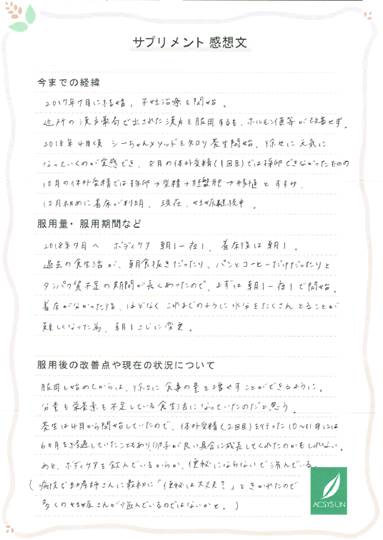 サプリメント 感想文
今までの経緯
2017年7月に結婚。不妊治療を開始。
近所の漢方薬局で出された漢方を服用するも、ホルモン値等が改善せず。
2018年4月頃 シーちゃんメソッドを知り養生開始。徐々に元気に
なっていくのが実感でき、8月の体外受精(1回目)では採卵できなかったものの
10月の体外受精では採卵→受精→胚盤胞→移植とすすみ、
12月初めに着床が判明。現在、妊娠継続中。
服用量・服用期間など
2018年7月〜 ボディケア 朝1-夜1、着床後は朝1。
過去の食生活が、朝食抜きだったり、パンとコーヒーだけだったりと
タンパク質不足の期間が長くあったので、まずは朝1-夜1で開始。
着床がわかった後、ほどなく これまでのように水分をたくさんとることが
難しくなった為、朝1こに変更。
服用後の改善点や現在の状況について
服用し始めてからは、徐々に食事の量を増やすことができるように。
分量も栄養素も不足している食生活になっていたのだと思う。
養生は4月から開始していたので、体外受精(2回目)を行った10〜11月には
6ヵ月を経過していたこともあり卵子が良い具合に成長してくれたのかもしれない。
あと、ボディケアを飲んでいるからか、便秘にならないで済んでいる。
(病院で助産師さんに最初に「便秘は大丈夫?」ときかれたので
多くの妊婦さんが悩んでいるのではないかと。)
ACSYSUN